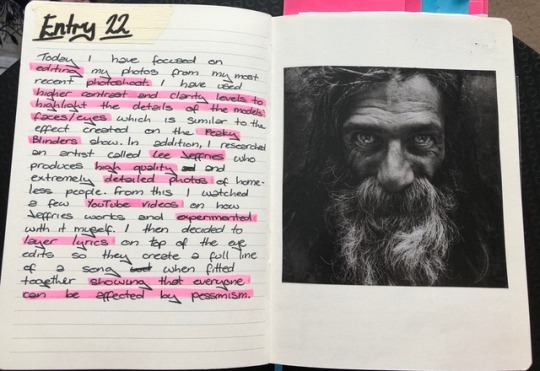 Entry 22
Today I have focused on
editing my photos from my most
recent photoshoot. I have used
higher contrast and clarity levels to
highlight the details of the models
faces/eyes which is similar to the
effect created on the Peaky
Blinders show. In addition, I researched
an artist called Lee Jeffries who
produces high quality and
extremely detailed photos of home-
less people. From this I watched
a few YouTube videos on how
Jeffries works and experimented
with it myself. I then decided to
layer lyrics on top of the eye
edits so they create a full line
of a song when fitted
together showing that everyone
can be affected by pessimism.